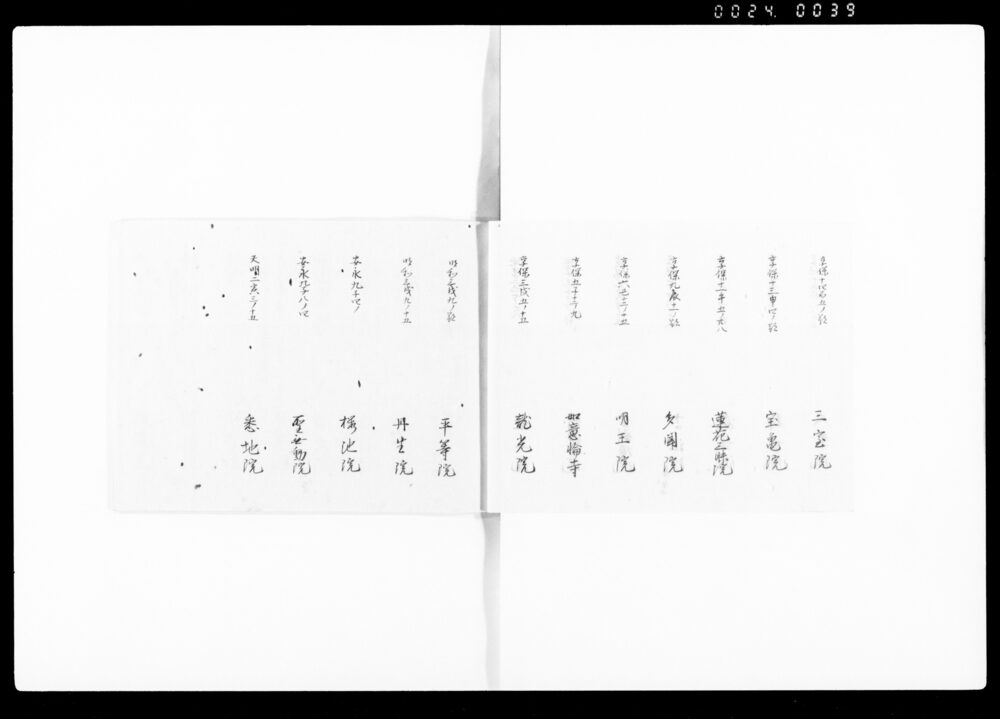 0024 0039
享保十四酉五ノ
三宝院
享保十三申四ノ
宝亀院
享保十一午五ノ廿八
蓮花三昧院
享保九辰十一ノ
多聞院
享保六丑十二ノ十五
明王院
享保五子十二ノ九
如意輪寺
享保三戌五ノ十五
龍光院
明和三戌九ノ
平等院
明和三戌九ノ十五
丹生院
安永九子四ノ
桜池院
安永九子八ノ四
聖無動院
天明二寅三ノ十五
悉地院